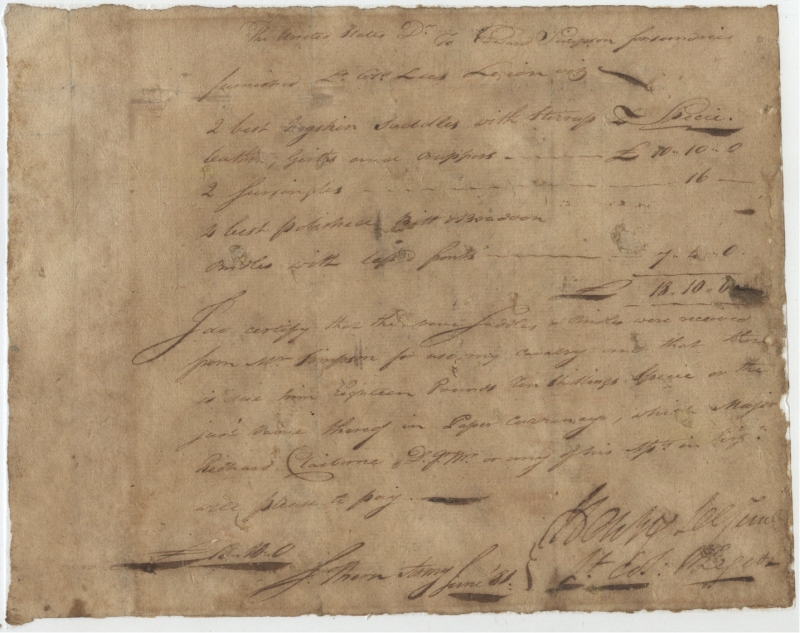 The United States Dr. To David Simpson for sundries
furnished Lt. Coll. Lees Legion viz
2 best Hogskin Saddles with Stirrup Specie.
leathers, Girths and cruppers £ 10.. 10.. 0
2 Sursingles 16
4 best polished Bitt & Bradoon
Bridles with fronts 7.. 4.. 0
£ 18.. 10.. 0
I do certify that the above Saddles & Bridles were received
from Mr. Simpson for use my cavalry and that there
is due him Eighteen Pounds Ten Shillings Specie or the
just value thereof in Paper Currency, which Major
Richard Claiborne D.Q.M. or any of his in Virga.
will please to pay.
£ 18.. 10.. 0
June 81
Henry Lee Junr
Lt. Col.